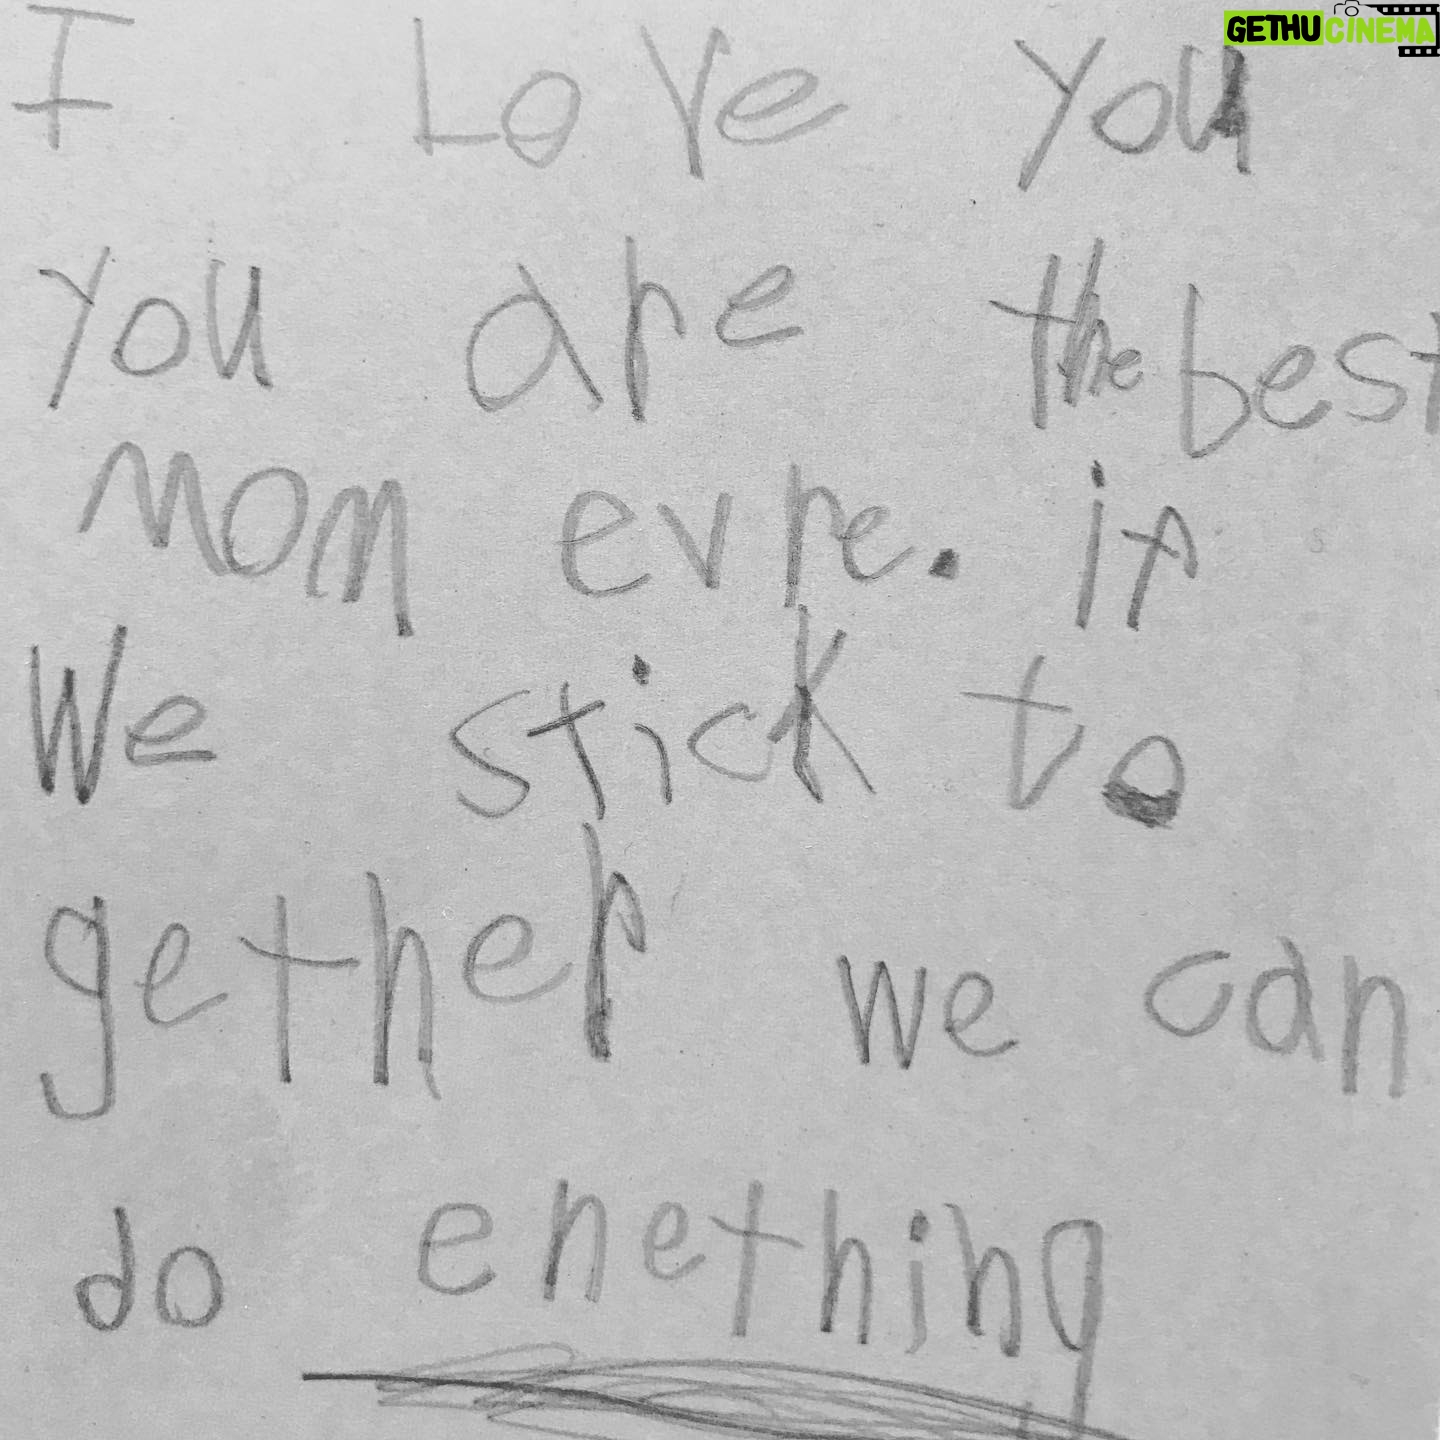 GETHUCINEMA
I Love you
you are the best
mom evre. if
We stick to
gether we can
do enething